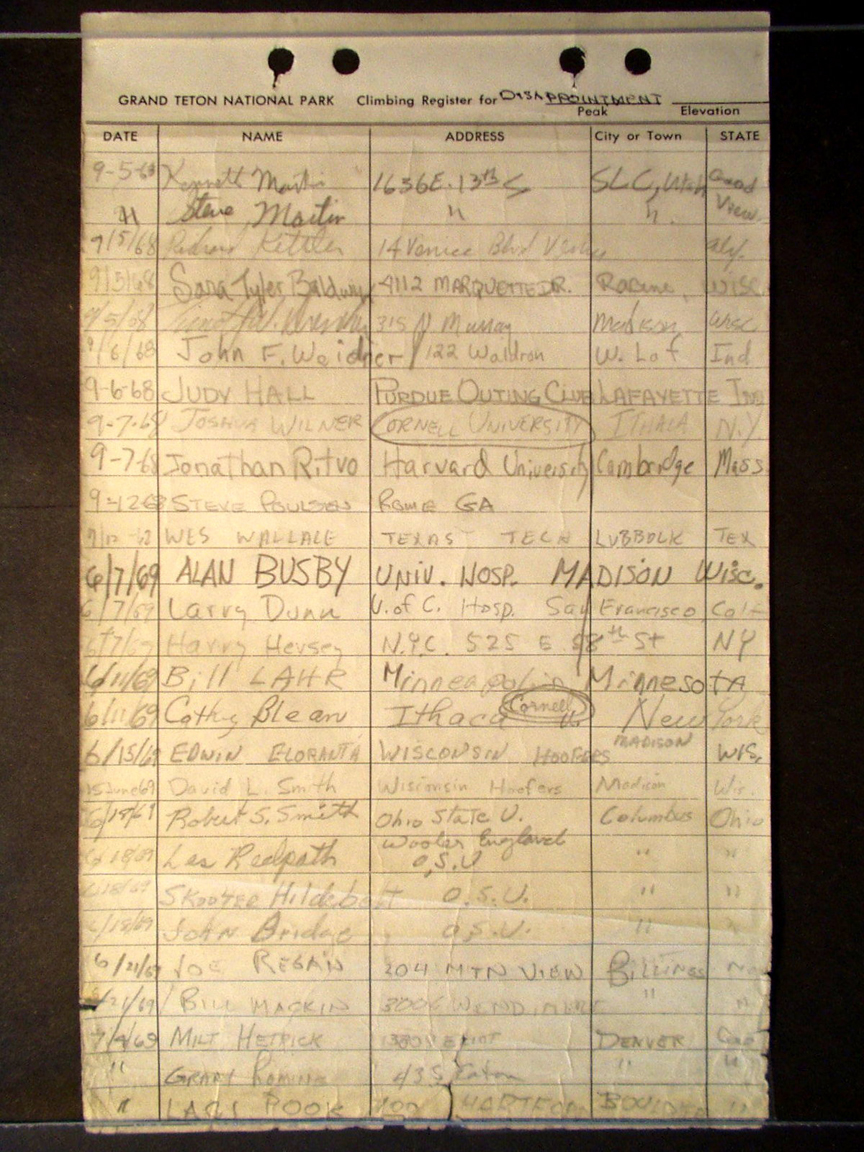 GRAND TETON NATIONAL PARK Climbing Register for DISAPPOINTMENT
Peak Elevation
DATE NAME ADDRESS City or Town STATE
9-5-68 Kenneth Martin 1636 E. 13th S SLC, Utah Good View
" Steve Martin " "
9/5/68 Richard Kettler 14 Venice Blvd
9/5/68 Sara Tyler Baldwin 4112 MARQUETTE DR. Racine, WISC
9/5/68 315 N Murray Madison, Wisc
9/6/68 John F. Weidner 122 Waldron W. Laf Ind
9-6-68 JUDY HALL PURDUE OUTING CLUB LAFAYETTE IND
9-7-68 JOSHUA WILNER CORNELL UNIVERSITY ITHACA N.Y.
9-7-68 Jonathan Ritvo Harvard University Cambridge Mass
9-1268 STEVE POULSEN ROME GA
WES WALLACE TEXAS TECH LUBBOCK TEX
6/7/69 ALAN BUSBY UNIV. HOSP. MADISON Wisc.
6/7/69 Larry Dunn U. of C. Hosp. San Francisco, Calf
6/7/69 Harry Hersey N.Y.C. 525 E 58th St NY
6/11/69 Bill LAHR Minneapolis Minnesota
6/11/69 Cathy Blean Ithaca Cornell U. New York
6/15/69 EDWIN ELORANTA WISCONSIN HOOFERS MADISON WIS,
15June69 David L. Smith Wisconsin Hoofers Madison Wis.
6/18/69 Robert S. Smith Ohio State U. Columbus Ohio
Wooler England
6/18/69 Les Redpath O.S.U " "
6/18/69 SKOOTER Hildebolt O.S.U. " "
6/18/69 JOHN Bridge O.S.U. " "
6/21/69 JOE REGAN 204 MTN VIEW BILLINGS
6/21/69 BILL MACKIN " "
7/4/69 MILT HETRICK DENVER Colo
" GRANT 435 Eaton " "
" LARS BOULDER "